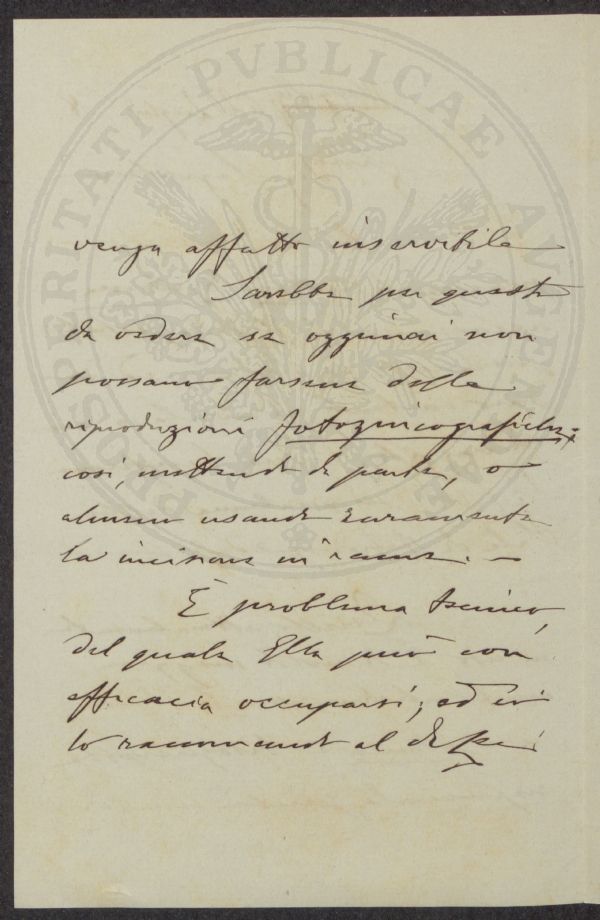 PROSPERITATI PVBLICAE AVGENDAE
venga affatto inservibile
Sarebbe per questo
da vedere se oggimai non
possano farsene delle
riproduzioni fotozincografiche;
così, mettendo da parte, o
almeno usando raramente
la incisione in rame. —
È problema tecnico,
del quale Ella può con
efficacia occuparsi; ed io
lo raccomando al di